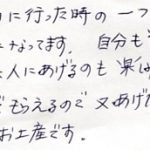 に行った時の一つ
なってます。自分も
人にあげるのも楽し
もらえるので又あげ
お土産です。